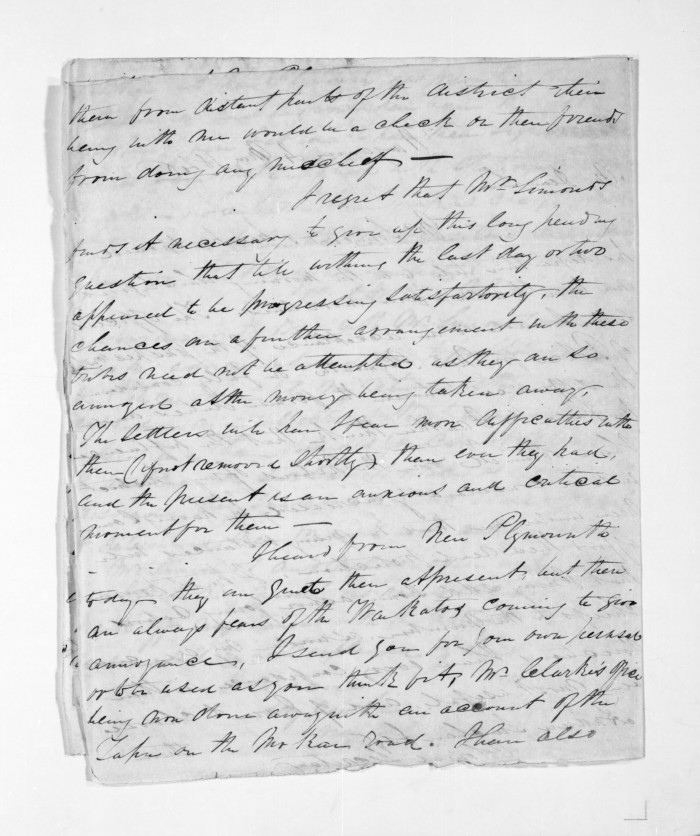 them from distant parts of the district their
being with me would be a check on their friends
from doing any mischief —
I regret that Mr Simonds
finds it necessary to give up this long pending
question that till within the last day or two
appeared to be progressing satisfactorily, the
chances are a further arrangement with these
tribes need not be attempted as they are so
annoyed at the money being taken away,
The Settlers will have I fear more difficulties with
them (if not removed shortly) than ever they had,
and the present is an anxious and critical
moment for them —
I heard from New Plymouth
today they are quiet there at present but there
are always fears of the Waikatos coming to give
annoyance, I send you for your own perusal
or to be used as you think fit, Mr Clarkes office
being now done away with an account of the
Tapu on the Mokau road. I have also